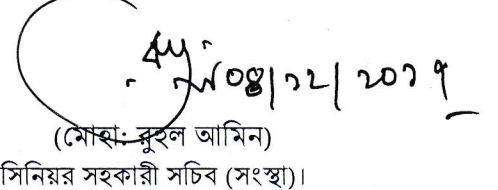 ০৪/১২/২০১৭
(মোহা: রুহুল আমিন)
সিনিয়র সহকারী সচিব (সংস্থা)।